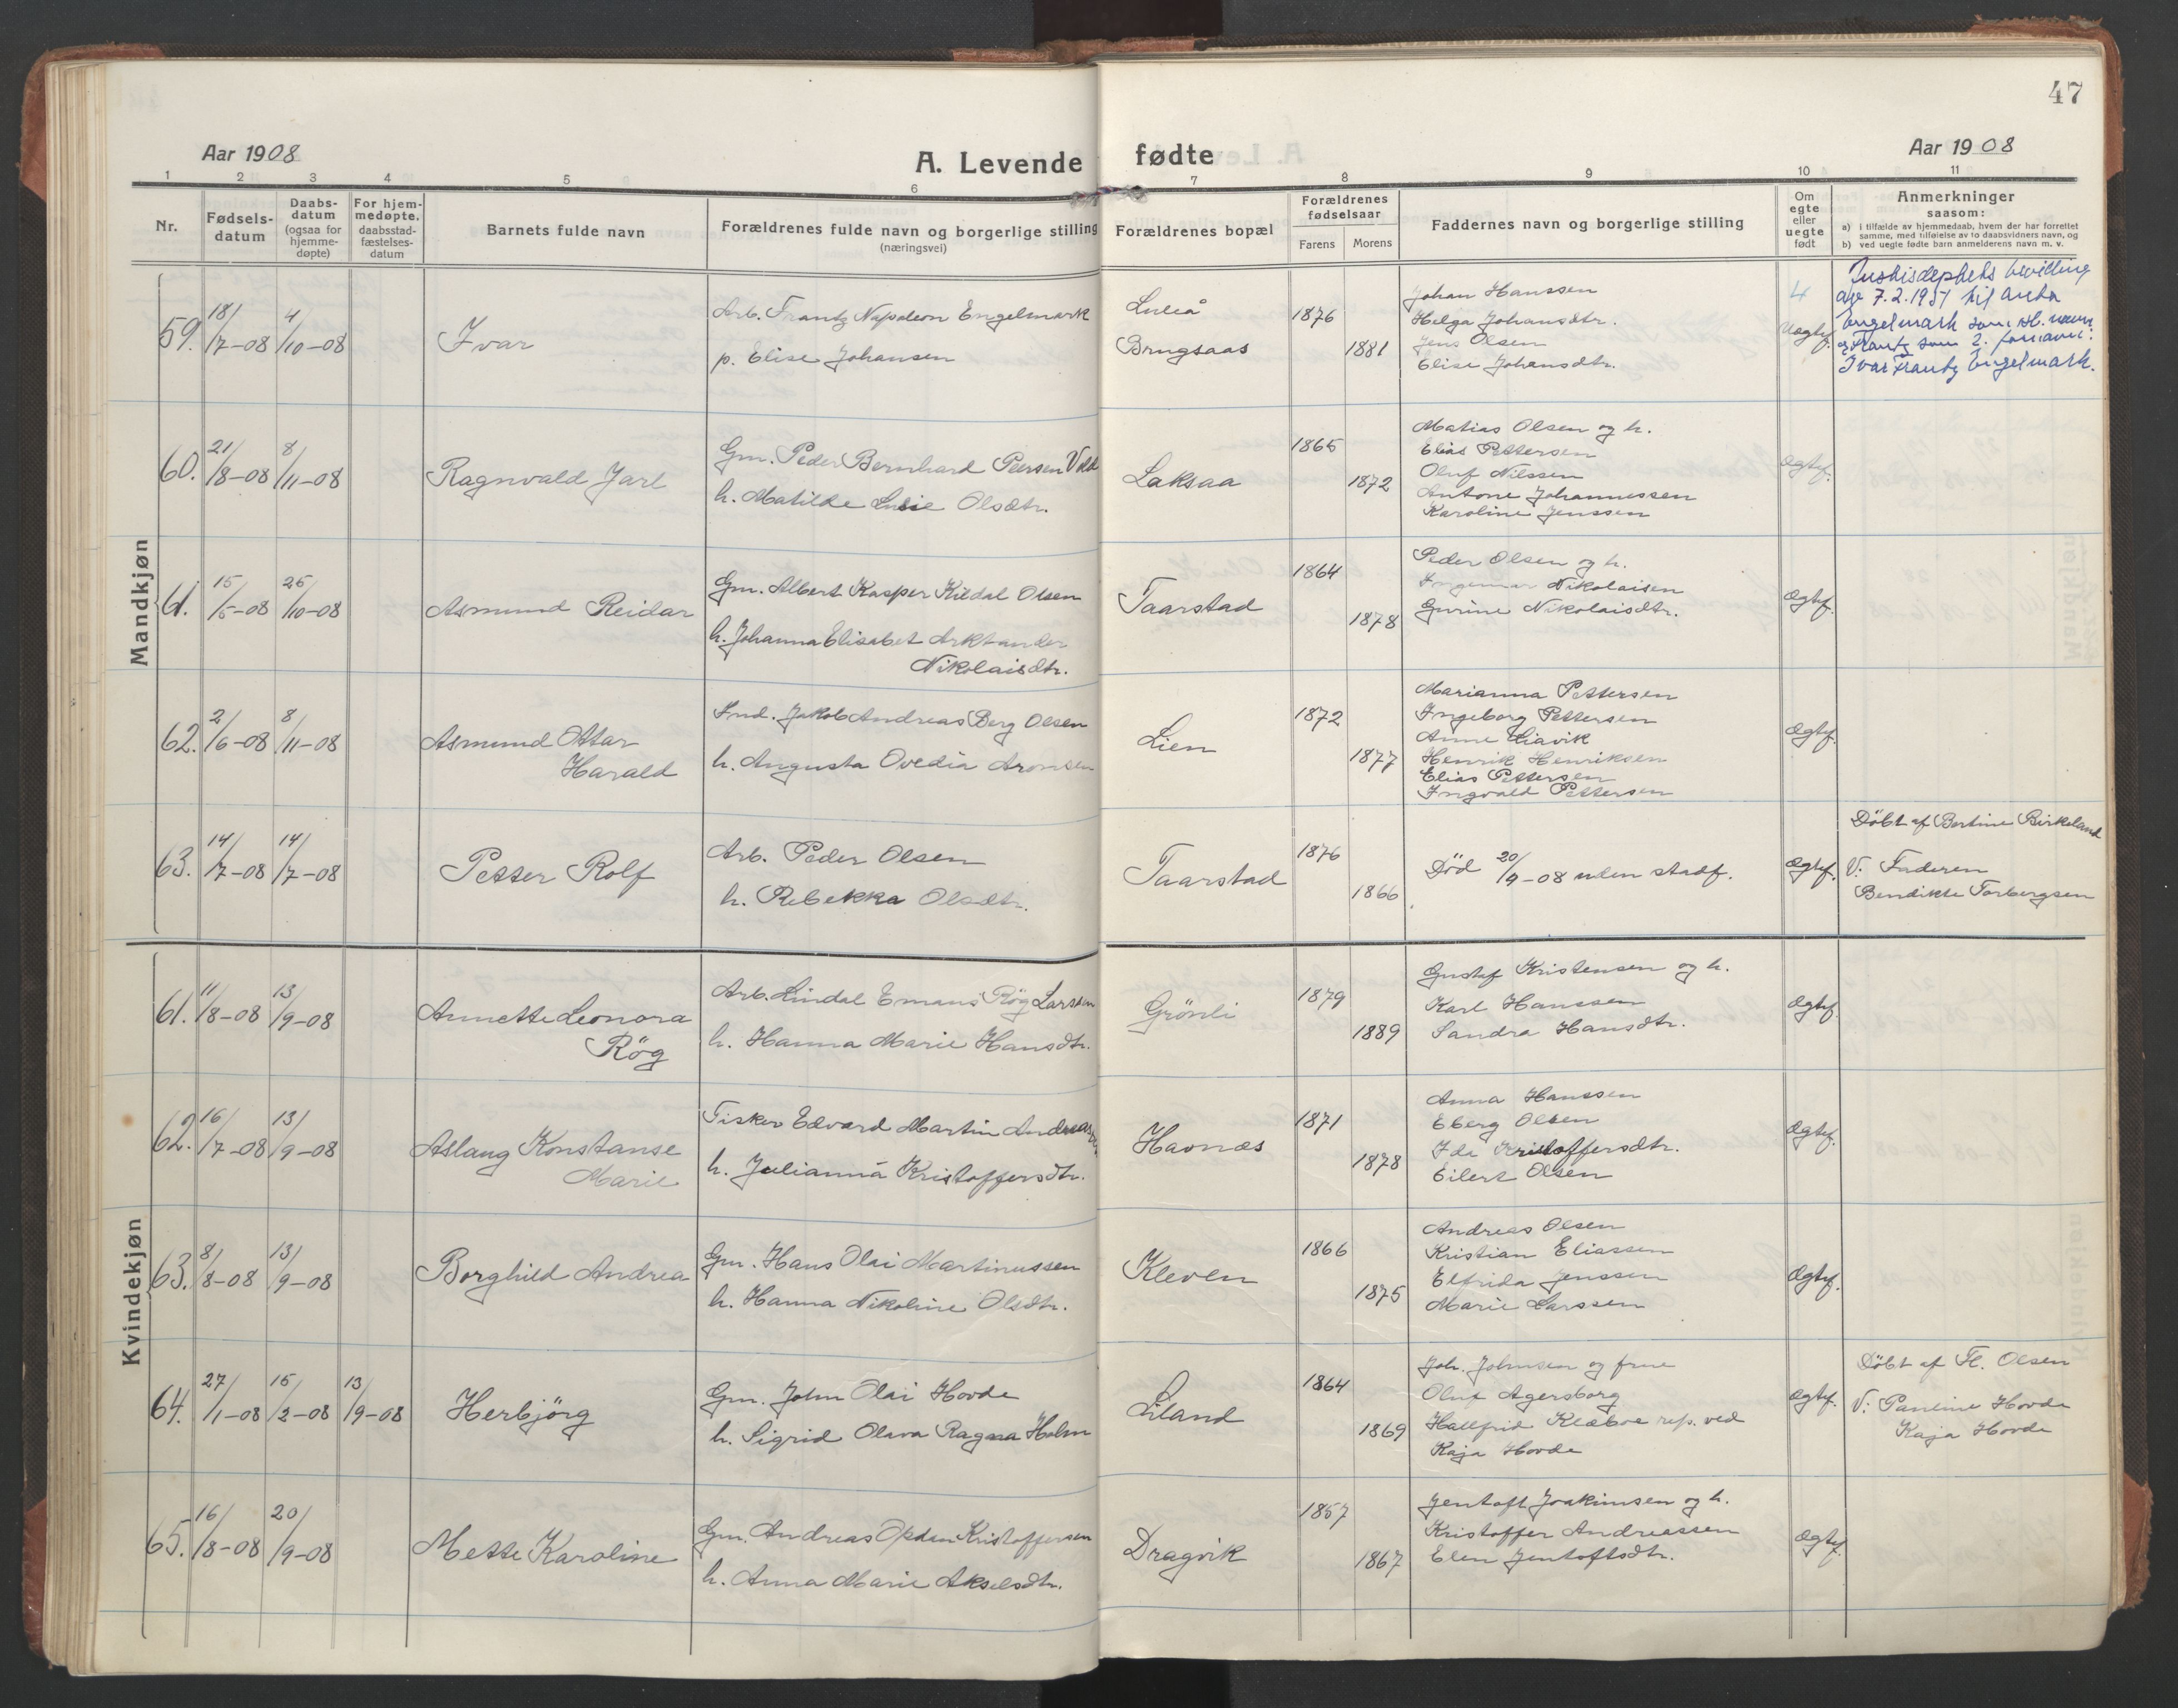 47
Aar 1908
A. Levende fødte
Aar 1908
1 2 3 4 5 6 7 8 9 10 11
Nr.
Fødsels-
datum
Daabs-
datum
(ogsaa for
hjemme-
døpte)
For hjem-
medøpte.
daabsstad-
fæstelses-
datum
Barnets fulde navn
Forældrenes fulde navn og borgerlige stilling
(næringsvei)
Forældrenes bopæl
Forældrenes
fødselsaar
Farens Morens
Faddernes navn og borgerlige stilling
Om
egte
eller
uegte
født
Anmerkninger
saasom:
a) i tilfælde av hjemmedaab, hvem der har forrettet
samme, med tilføielse av to daabsvidners navn, og
b) ved uegte fødte barn anmelderens navn m. v.
Mandkjøn
59. 18/7-08 4/10-08
Ivar
Arb. Frantz Napoleon Engelmark
p. Elise Johansen
Luleå
Brugsaas
1876
1881
Johan Hanssen
Helga Johansdtr.
Jens Olsen
Elise Johansdtr.
4
Uægtef.
Justisdeptets bevilling
age 7.2.1951 til anta
Engelmark som sl. navn
og Frantz som 2. fornavn:
Ivar Frantz Engelmark.
60. 21/8-08 8/11-08
Ragnvald Jarl
Gm. Peder Bernhard Peersen Vold
h. Matilde Lusie Olsdtr.
Laksaa
1865
1872
Matias Olsen og h.
Elias Pettersen
Oluf Nilssen
Antone Johannessen
Karoline Jenssen
ægtef.
61. 15/5-08 25/10-08
Asmund Reidar
Gm. Albert Kasper Kildal Olsen
h. Johanna Elisabet Arktander
Nikolaisdtr.
Taarstad
1864
1878
Peder Olsen og h.
Ingemar Nikolaisen
Gurine Nikolaisdtr.
ægtef.
62. 2/6-08 8/11-08
Asmund Ottar
Harald
Ind. Jakob Andreas Berg Olsen
h. Augusta Ovedia Aronsen
Lien
1872
1877
Marianna Pettersen
Ingeborg Pettersen
Anne Liavik
Henrik Henriksen
Elias Pettersen
Ingvald Pettersen
ægtef.
63. 14/7-08 14/7-08
Petter Rolf
Arb. Peder Olsen
h. Rebekka Olsdtr.
Taarstad
1876
1866
Död 20/9-08 uden stadf.
ægtef.
Döbt af Bertine Birkeland
V: Faderen
Bendikte Torbergsen
Kvindekjøn
61. 11/8-08 13/9-08
Annette Leonora
Rög
Arb. Lindal Emans Rög Larssen
h. Hanna Marie Hansdtr.
Grönli
1879
1889
Gustaf Kristensen og h.
Karl Hanssen
Sandra Hansdtr.
ægtef.
62. 16/7-08 13/9-08
Aslaug Konstanse
Marie
Fisker Edvard Martin Andreassen
h. Julianna Kristoffersdtr.
Havnæs
1871
1878
Anna Hanssen
Eberg Olsen
Ida Kristoffersdtr.
Eilert Olsen
ægtef.
63. 8/8-08 13/9-08
Borghild Andrea
Gm. Hans Olai Martinussen
h. Hanna Nikoline Olsdtr.
Kleven
1866
1875
Andreas Olsen
Kristian Eliassen
Elfrida Jenssen
Marie Larssen
ægtef.
64. 27/1-08 15/2-08 13/9-08
Herbjörg
Gm. John Olai Hovde
h. Sigrid Olava Ragna Holm
Liland
1864
1869
Joh. Johnsen og frue
Oluf Agersborg
Hallfrid Klæboe rep. ved
Kaja Hovde
ægtef.
Döbt af Fl. Olsen
V: Pauline Hovde
Kaja Hovde
65. 16/8-08 20/9-08
Mette Karoline
Gm. Andreas Opdan Kristoffersen
h. Anna Marie Akselsdtr.
Dragvik
1857
1867
Jentoft Joakimsen og h.
Kristoffer Andreassen
Elen Jentoftsdtr.
ægtef.